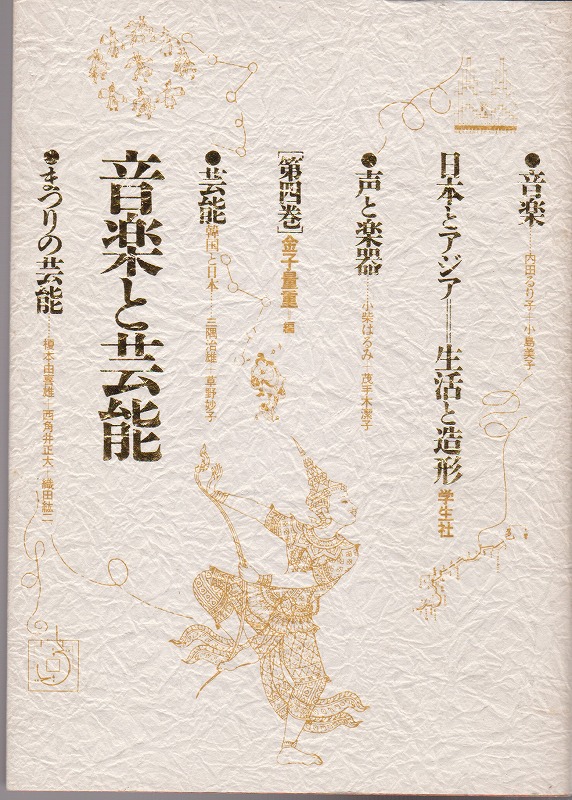 ●音楽……内田るり子─小島美子
日本とアジア══生活と造形 学生社
●声と楽器……小柴はるみ─茂手木潔子
[第四巻]金子量重─編
●芸能 韓国と日本……三隅治雄─草野妙子
音楽と芸能
●まつりの芸能……榎本由喜雄─西角井正大─織田紘二